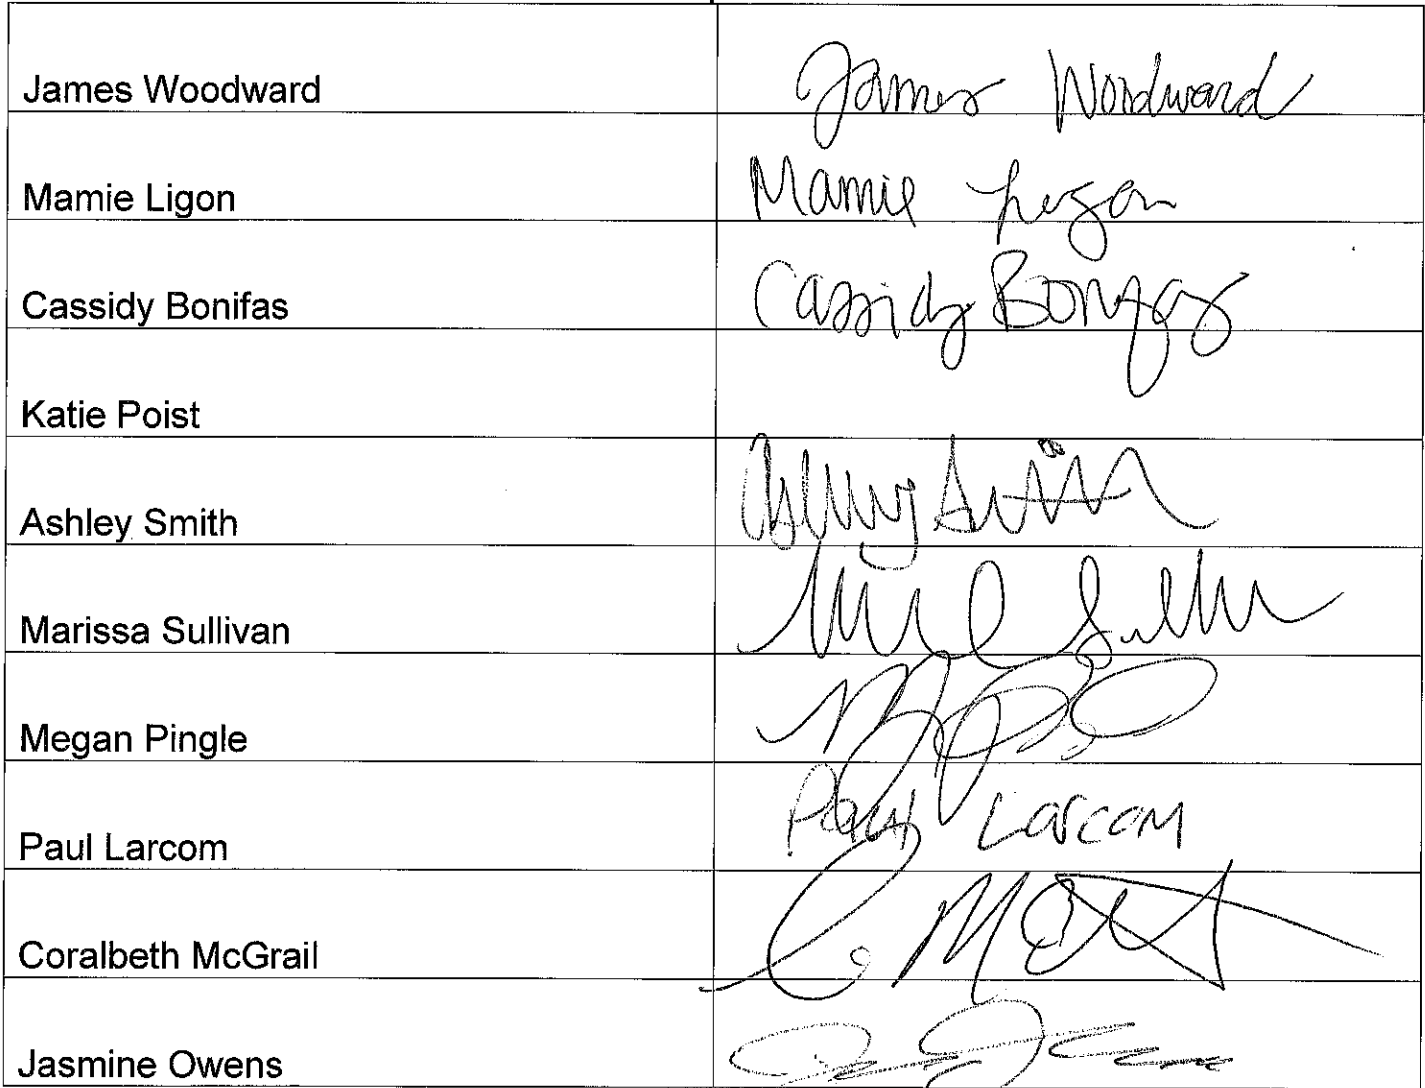 James Woodward James Woodward
Mamie Ligon Mamie Ligon
Cassidy Bonifas Cassidy Bonifas
Katie Poist
Ashley Smith Ashley Smith
Marissa Sullivan
Megan Pingle
Paul Larcom Paul Larcom
Coralbeth McGrail
Jasmine Owens